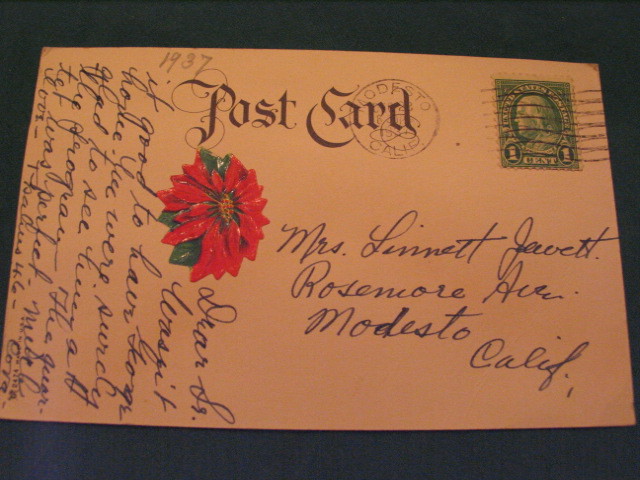 1937
Post Card
MODESTO
CALIF.
UNITED STATES POSTAGE
1 CENT 1
Mrs. Linnett Jewett.
Rosemore Ave.
Modesto
Calif.
Dear Sr.
Wasn't
it good to have George
home. We were surely
glad to see him at
the program. The quar-
tet was perfect.
Cora-